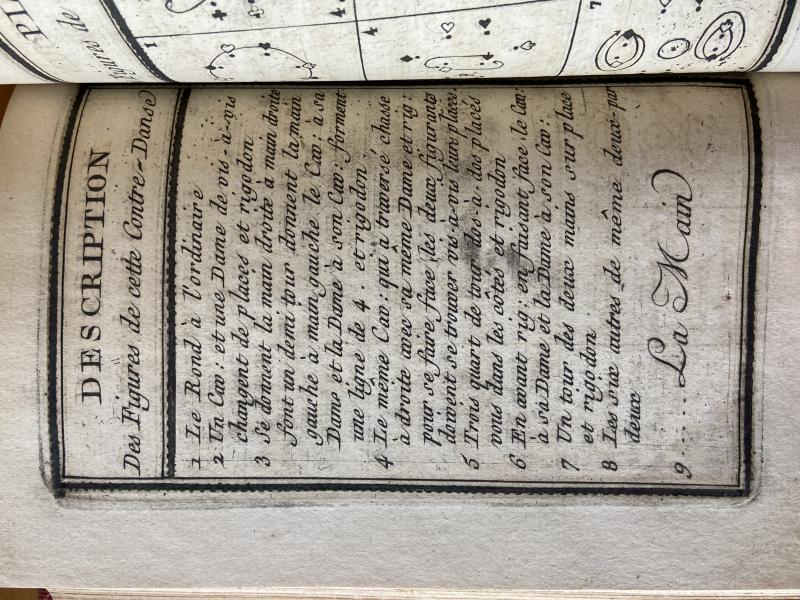 DESCRIPTION
Des Figures de cette Contre-Danse
1 Le Rond à l'ordinaire
2 Un Cav: et une Dame de vis-à-vis
changent de places et rigodon
3 Se donnent la main droite à main droite
font un demi tour donnent la main
gauche à main gauche le Cav: à sa
Dame et la Dame à son Cav: forment
une ligne de 4. et rigodon
4 Le même Cav: qui à traversé chasse
à droite avec sa même Dame et rig:
pour se faire face les deux figurants
doivent se trouver vis-à-vis leurs places.
5 Trois quart de tour dos-à-dos placés
vous dans les côtés et rigodon
6 En avant rig: en faisant face le Cav:
à sa Dame et la Dame à son Cav:
7 Un tour des deux mains sur place
et rigodon
8 Les six autres de même deux-par
deux
9 ...... La Main
Figure de
1
4
7